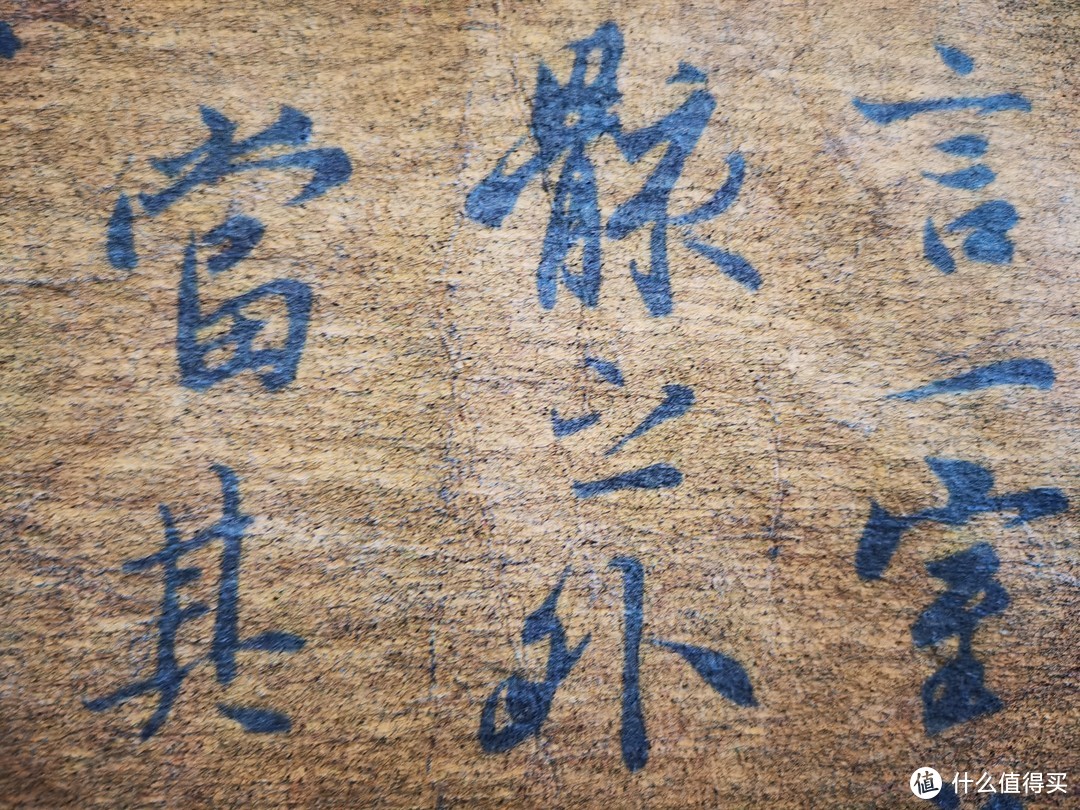 言一室
骸之外
當其
值 什么值得买